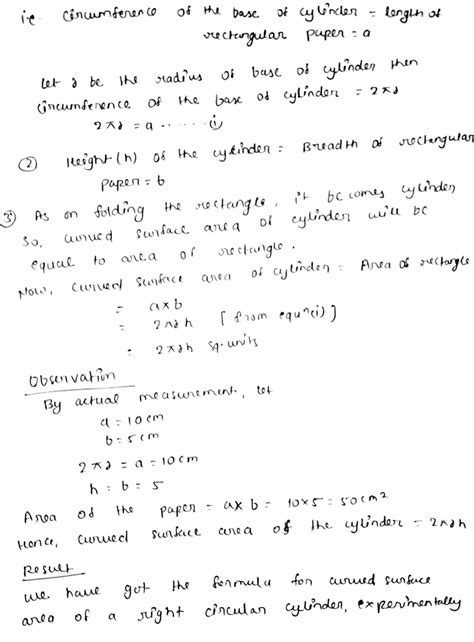 i.e. Circumference of the base of cylinder = length of
rectangular paper = a
Let r be the radius of base of cylinder then
Circumference of the base of cylinder = 2πr
2πr = a ...... (i)
② Height (h) of the cylinder = Breadth of rectangular
paper = b
③ As on folding the rectangle, it becomes cylinder
So, curved surface area of cylinder will be
equal to area of rectangle.
Now, curved surface area of cylinder = Area of rectangle
= a×b
= 2πrh [from equn(i)]
= 2πrh sq. units
Observation
By actual measurement, let
a = 10cm
b = 5cm
2πr = a = 10cm
h = b = 5
Area of the paper = a×b = 10×5 = 50cm²
Hence, curved surface area of the cylinder = 2πrh
Result
we have got the formula for curved surface
area of a right circular cylinder, experimentally